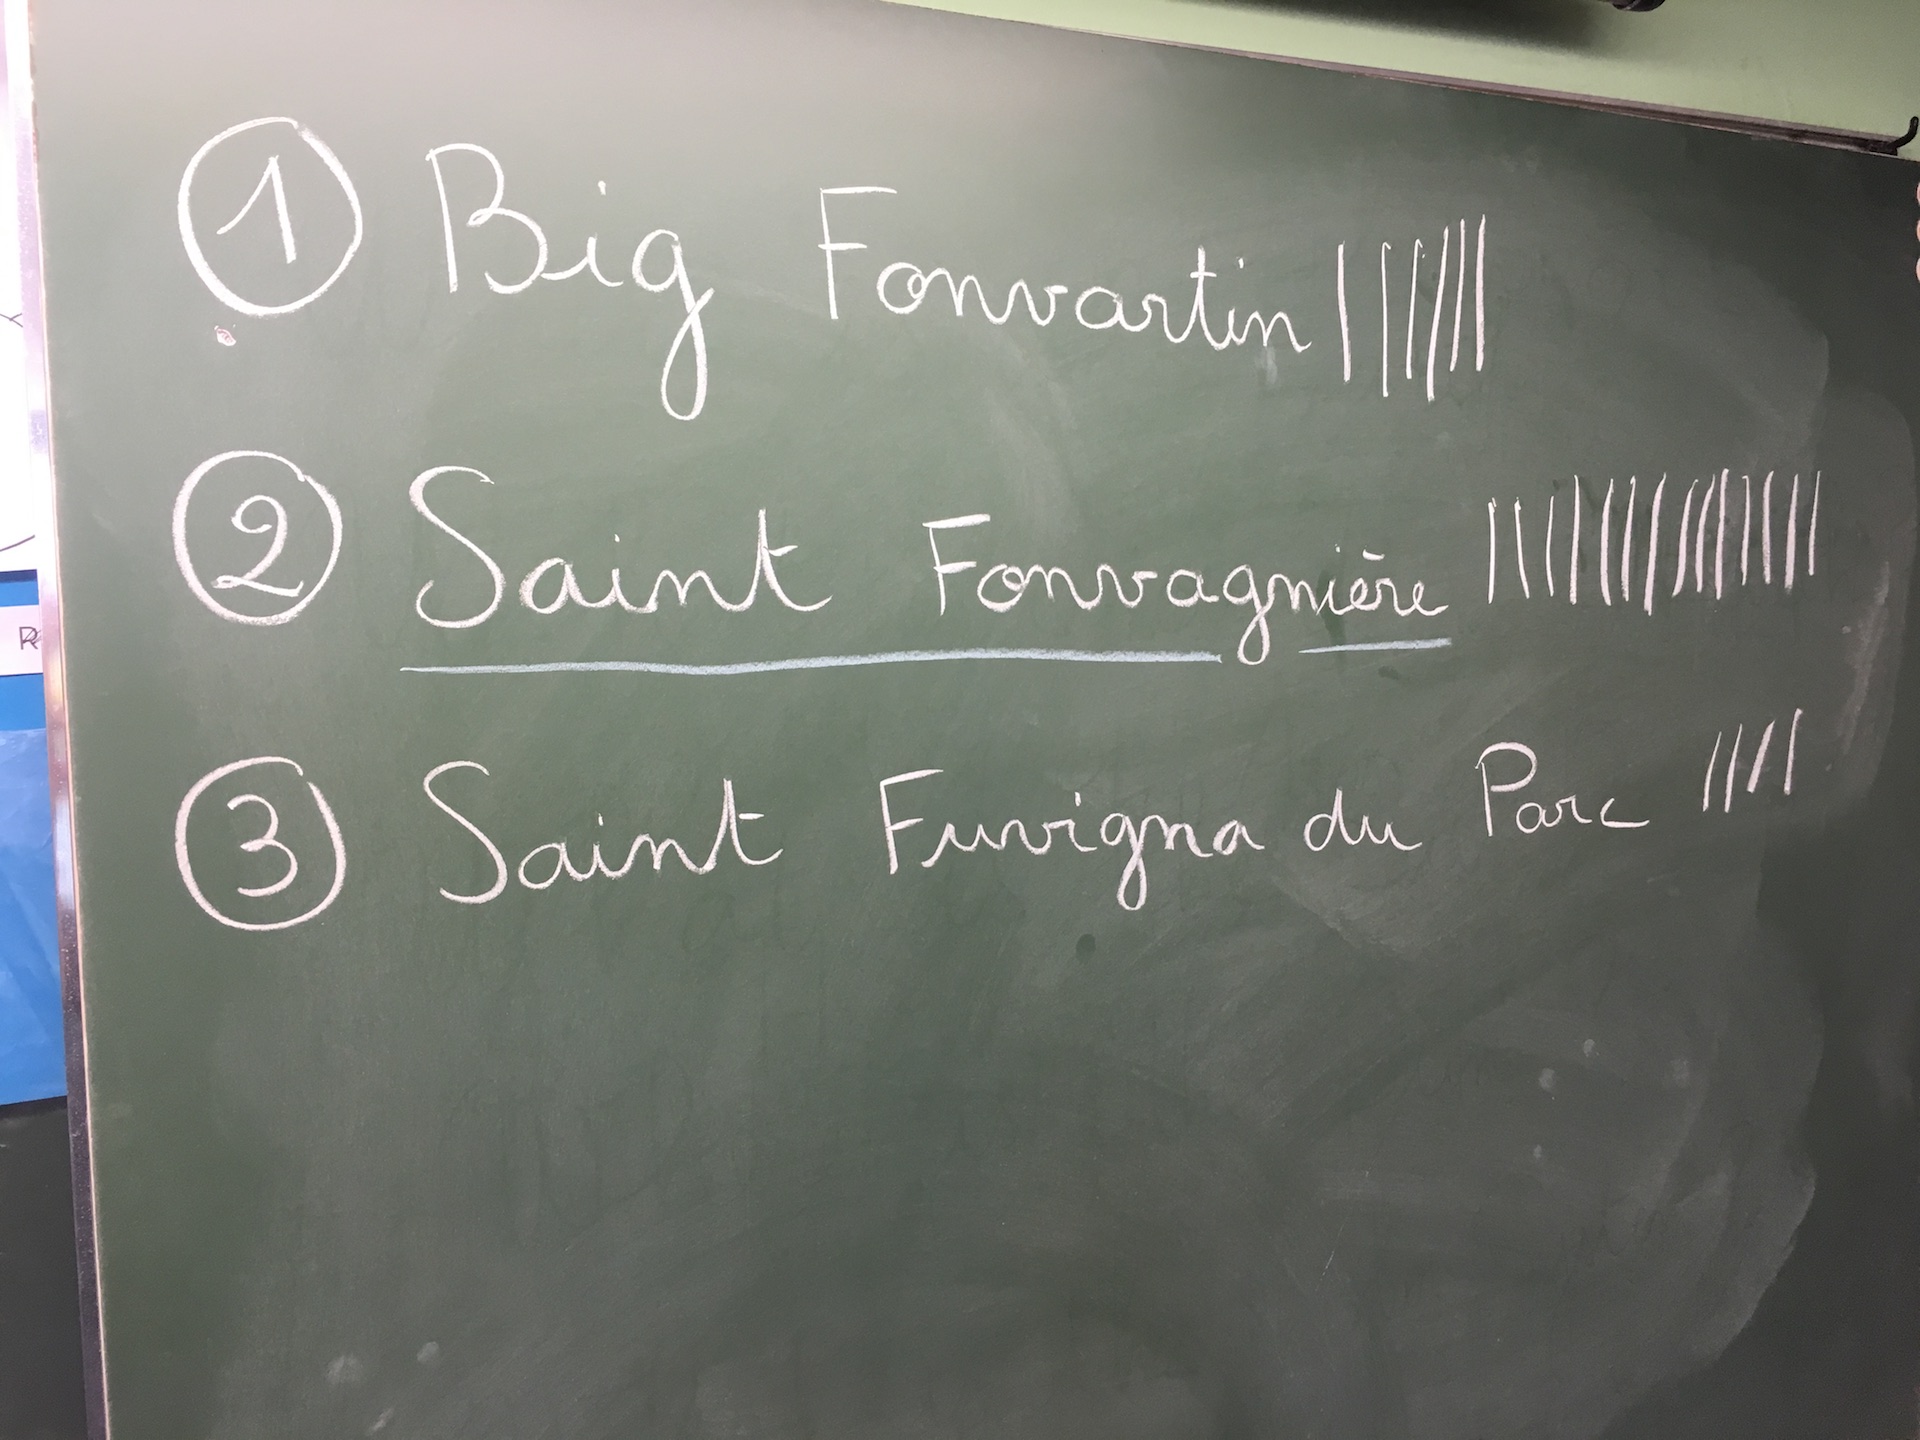 1 Big Fonvartin ||||||
2 Saint Fonvagnière |||||||||||||
3 Saint Fuvigna du Parc ||||
R